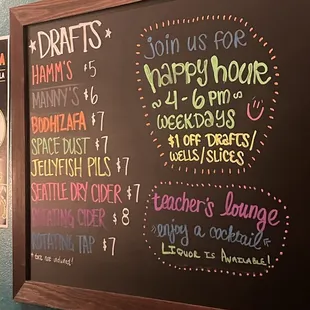 DRAFTS
HAMM'S $5
MANNY'S $6
BODHIZAFA $7
SPACE DUST $7
JELLYFISH PILS $7
SEATTLE DRY CIDER $7
ROTATING CIDER $8
ROTATING TAP $7
included!
join us FOR
happy hour
~ 4-6pm ~
WEEKDAYS
$1 OFF DRAFTS/
WELLS/SLICES
teacher's lounge
enjoy a cocktail
LIQUOR IS AVAILABLE!